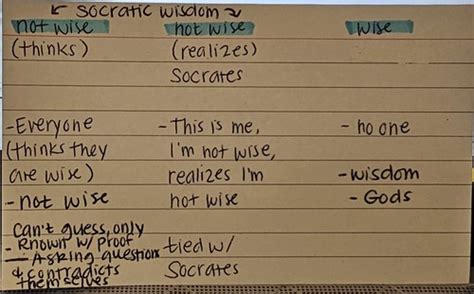 ← Socratic wisdom →
not wise not wise wise
(thinks) (realizes)
Socrates
- Everyone - This is me, - no one
(thinks they I'm not wise,
are wise) realizes I'm - wisdom
- not wise not wise - Gods
Can't guess, only
- Known w/ proof tied w/
— Asking questions Socrates
& contradicts
themselves